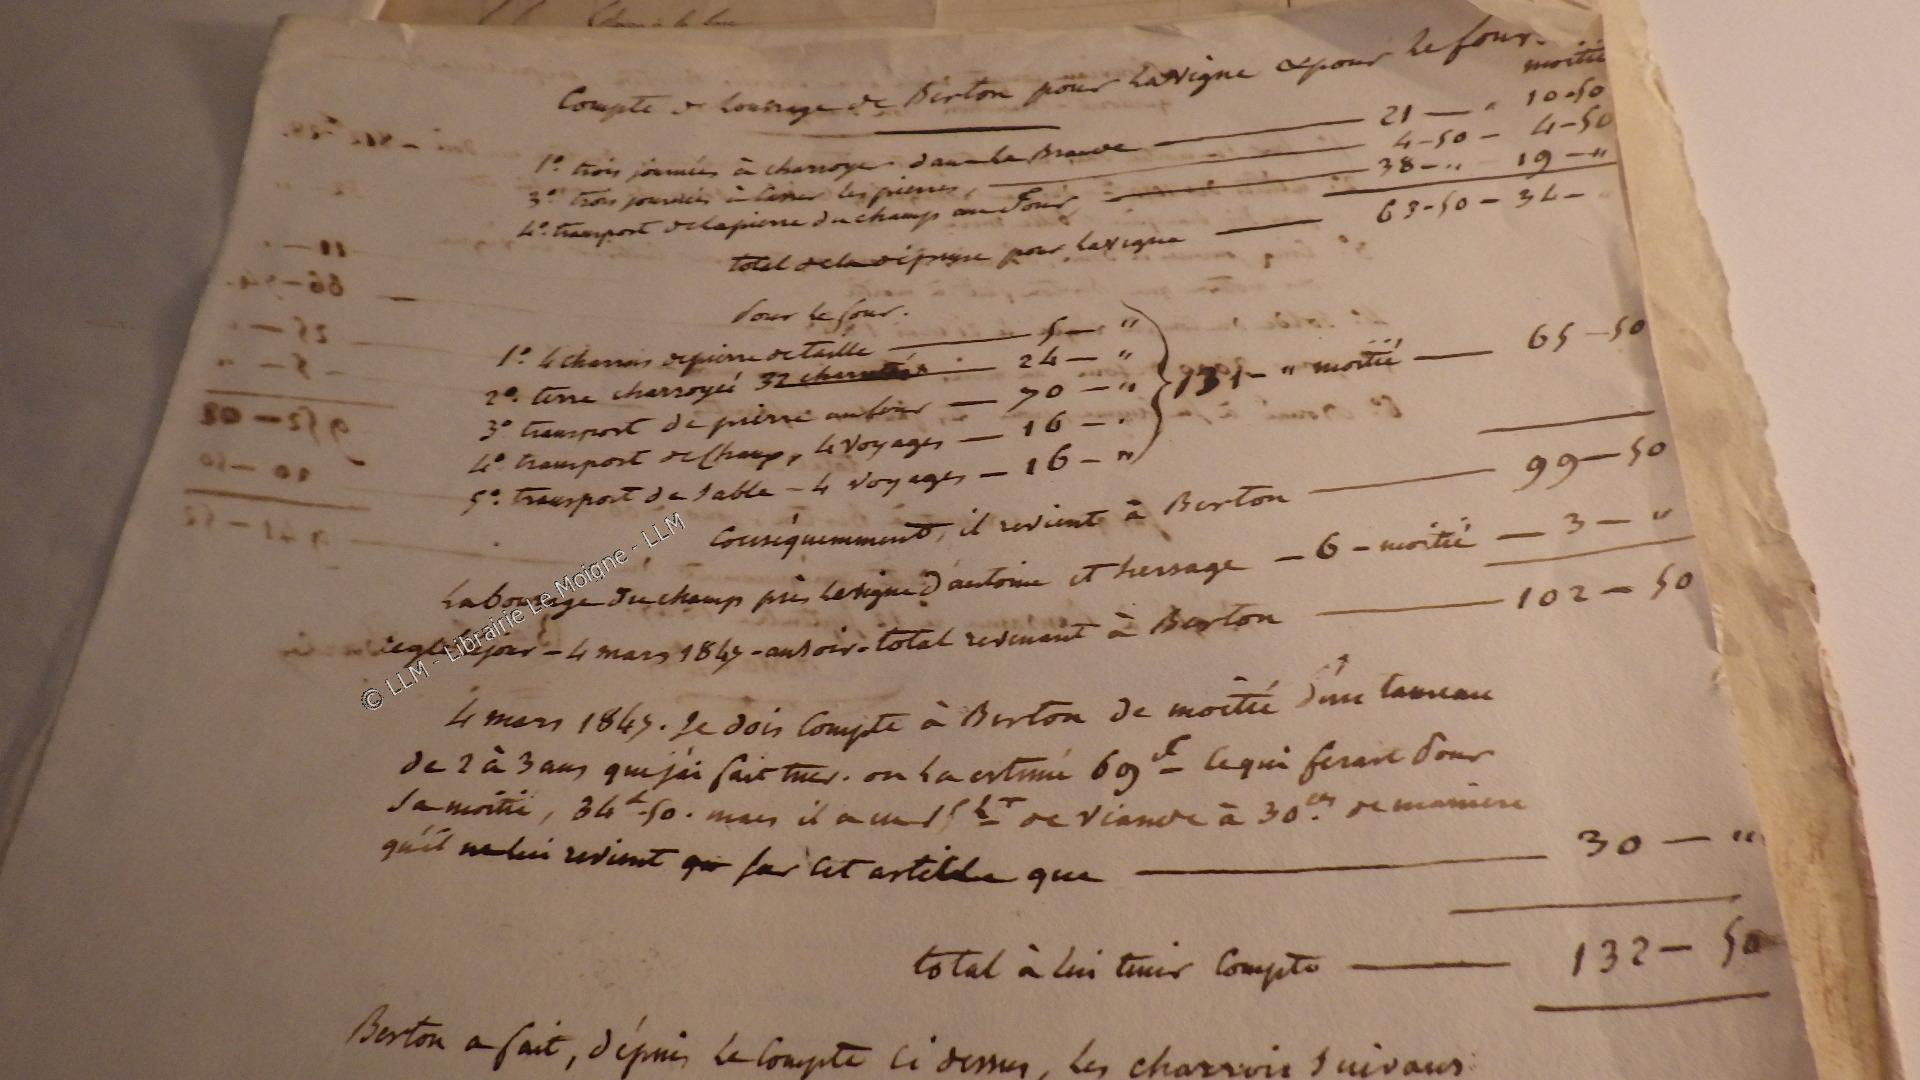 Compte de l'ouvrage de Berton pour la vigne & pour le four.
moitié
1° trois journées à charroyer dans la Brande — 21 — " 10-50
3° trois journées à casser les pierres, — 4-50 — 4-50
4° transport de la pierre du champ au four — 38 — " — 19 — "
total de la dépense pour la vigne — 63-50 — 34 — "
Pour le four.
1° 4 charrois de pierre de taille — 5 — "
2° terre charroyée 32 charretées — 24 — "
3° transport de pierre au four — 70 — "
4° transport de chaux, 4 voyages — 16 — "
5° transport de sable — 4 voyages — 16 — "
131 — " moitié — 65-50
Conséquemment, il revient à Berton — 99-50
Labourage du champ près la vigne d'antoine et hersage — 6 — moitié — 3 — "
réglé le jour — 4 mars 1847 — au soir — total revenant à Berton — 102-50
4 mars 1847. Je dois compte à Berton de moitié d'un taureau
de 2 à 3 ans que j'ai fait tuer. on l'a estimé 69 f ce qui ferait pour
sa moitié, 34 f-50. mais il a eu 15 L de viande à 30 ces de manière
qu'il ne lui revient par cet article que — 30 — "
total à lui tenir compte — 132-50
Berton a fait, dépuis le compte ci dessus, les charrois suivans
© LLM - Librairie Le Moigne - LLM